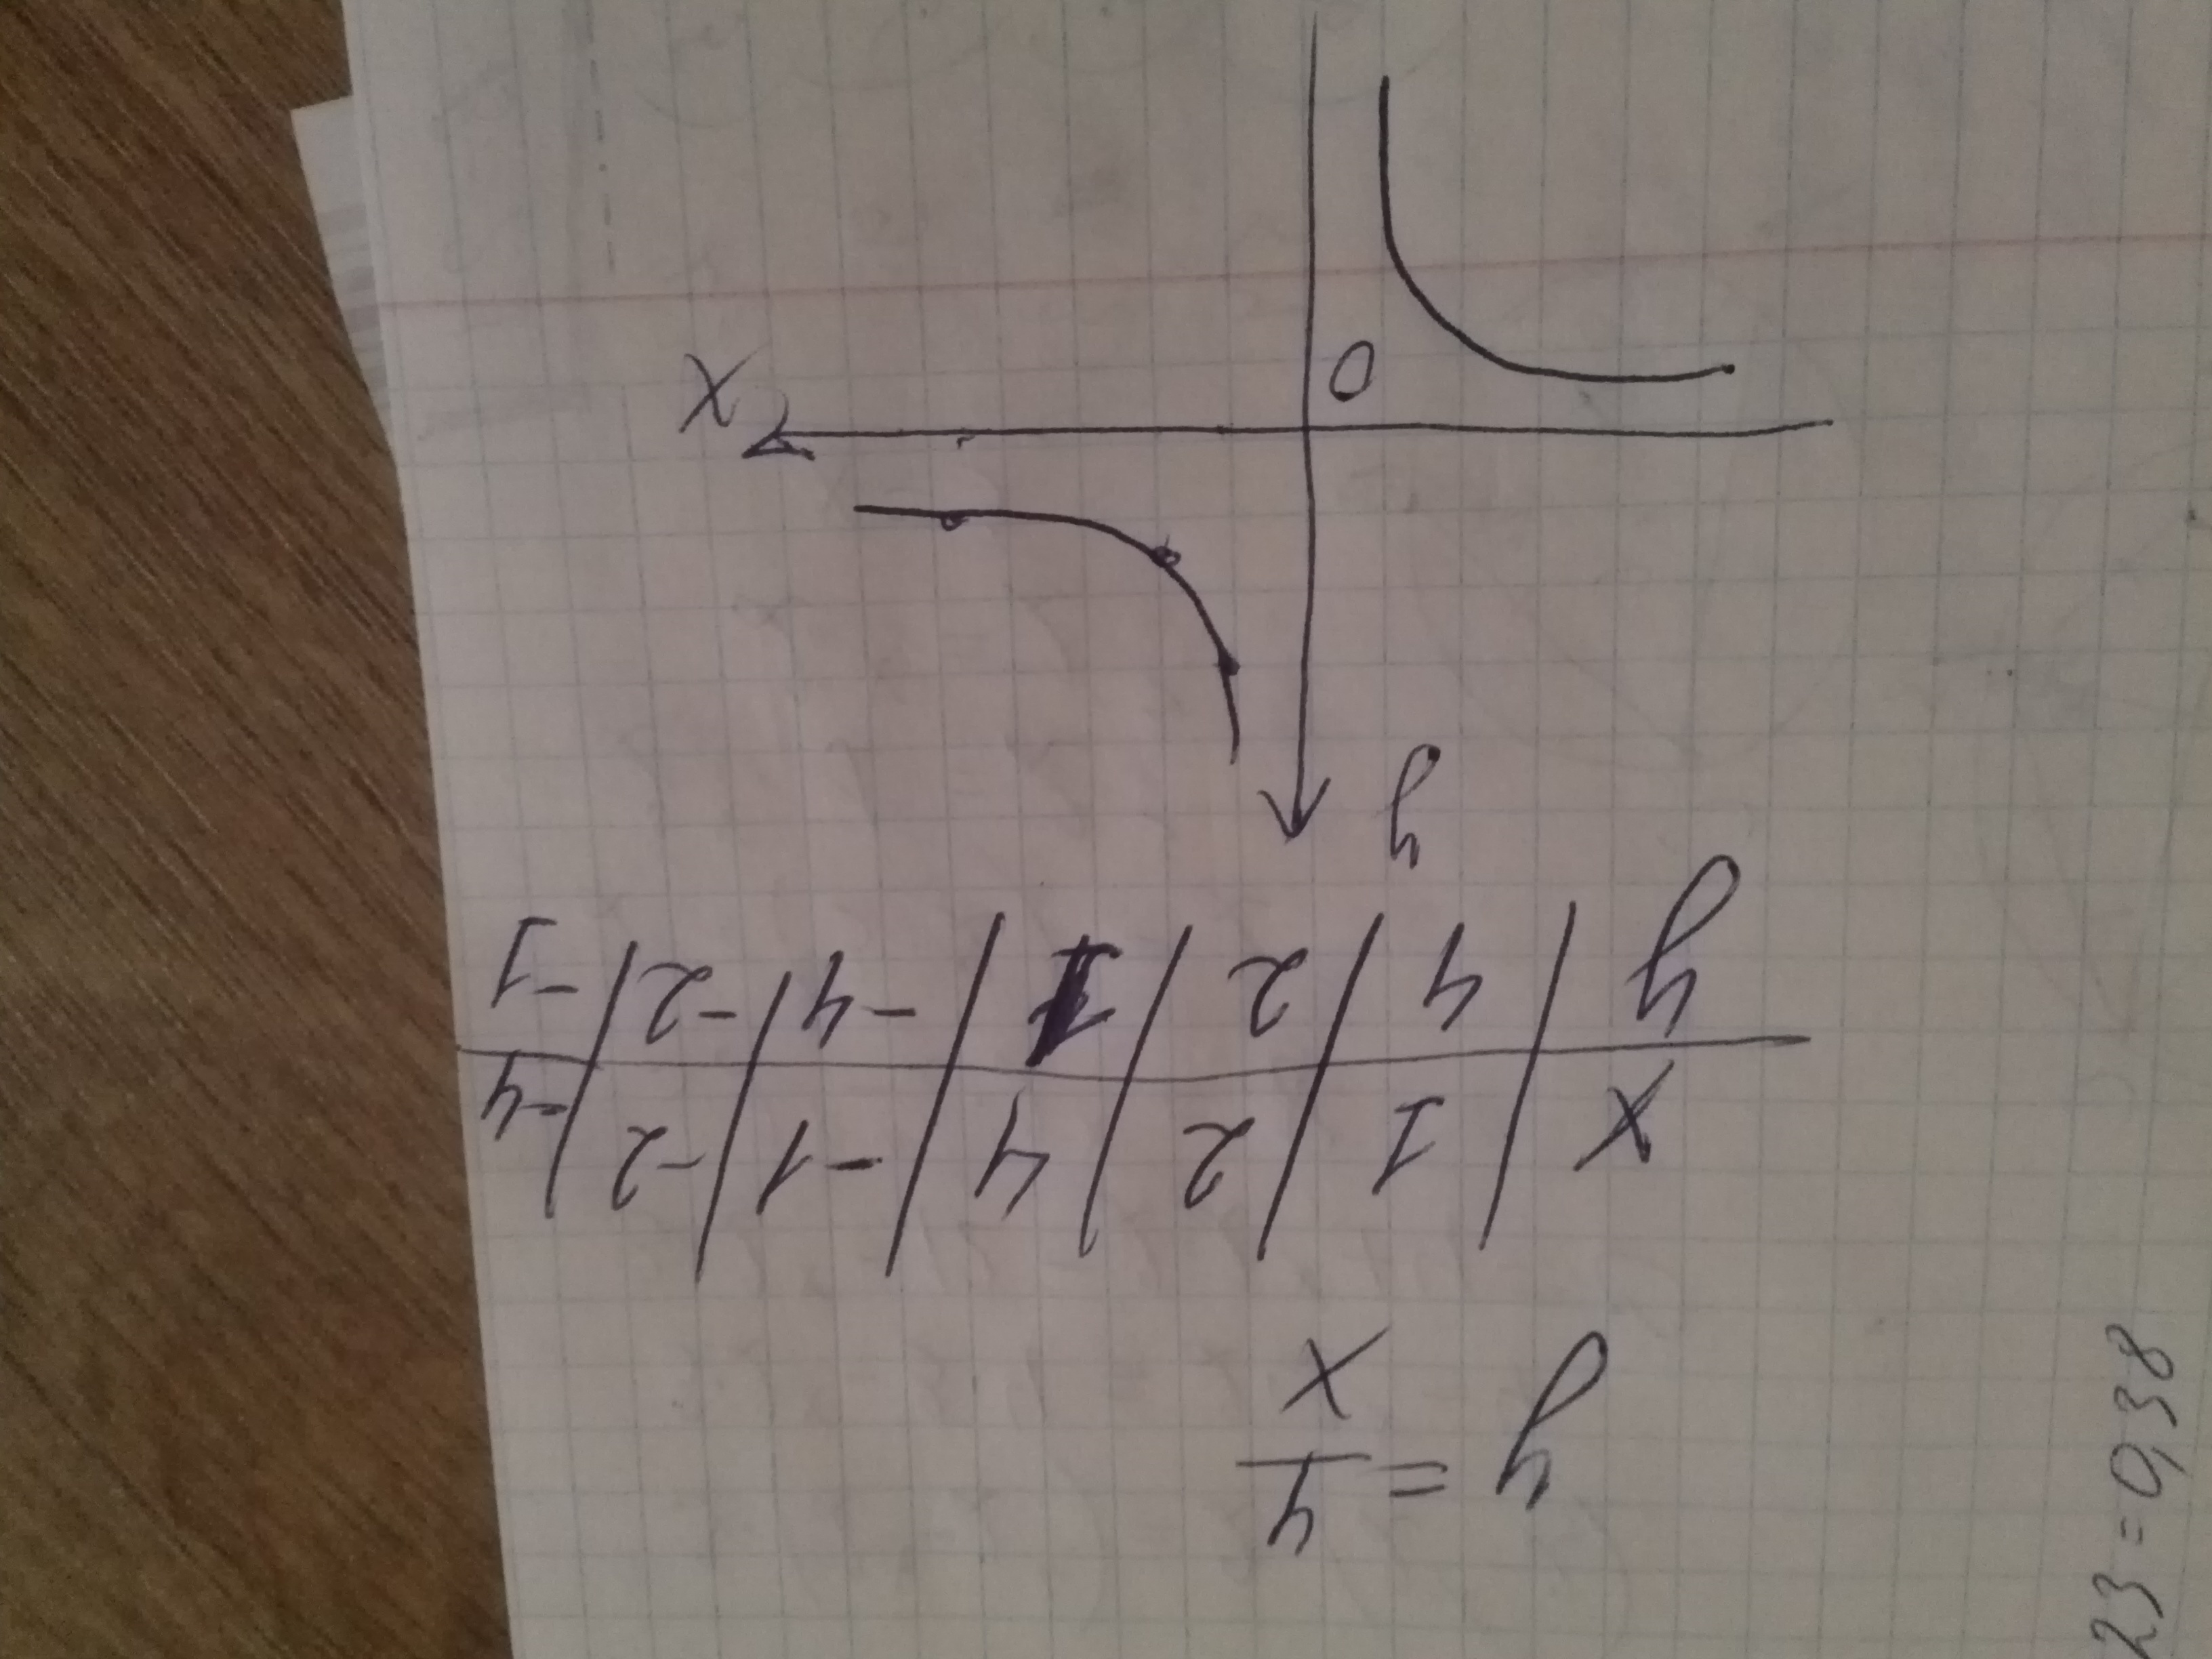 y = 4/x
x | 1 | 2 | 4 | -1 | -2 | -4
y | 4 | 2 | 1 | -4 | -2 | -1
y
0
x
23 = 0,38